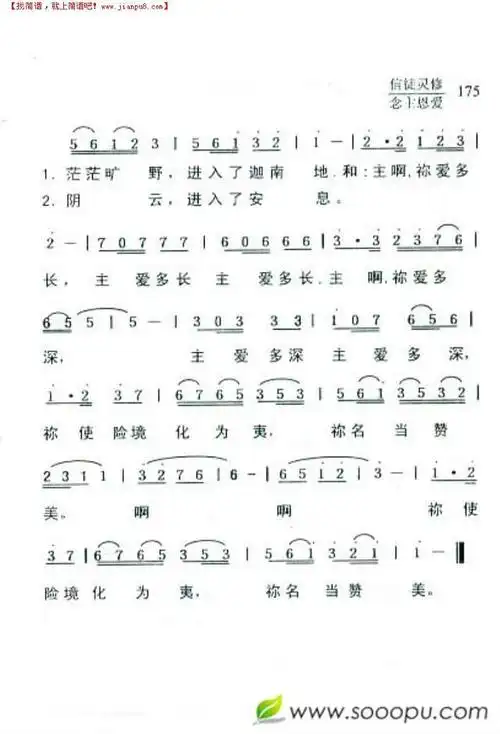 【找简谱,就上简谱吧! www.jianpu8.com】
信徒灵修
念主恩爱 175
5 6 1 2 3 | 5 6 1 3 2 | 1 - | 2 · 2 1 2 3
1. 茫茫旷 野,进入了迦南 地.和:主啊,祢爱多
2. 阴 云,进入了安 息。
2 - | 7 0 7 7 7 | 6 0 6 6 6 | 3 · 3 2 3 7 6
长, 主 爱多长 主 爱多长.主 啊,祢爱多
6 5 5 | 5 - | 3 0 3 3 3 | 1 0 7 6 5 6
深, 主 爱多深 主 爱多深,
1 · 2 3 7 | 6 7 6 5 3 5 3 | 5 6 1 3 5 3 2
祢 使 险境 化 为 夷, 祢名 当 赞
2 3 1 1 | 3 2 7 6 | 6 - | 6 5 1 2 | 3 - | 1 · 2
美。 啊 啊 祢 使
3 7 | 6 7 6 5 3 5 3 | 5 6 1 3 2 1 | 1 -
险境化 为 夷, 祢名 当赞 美。
www.sooopu.com